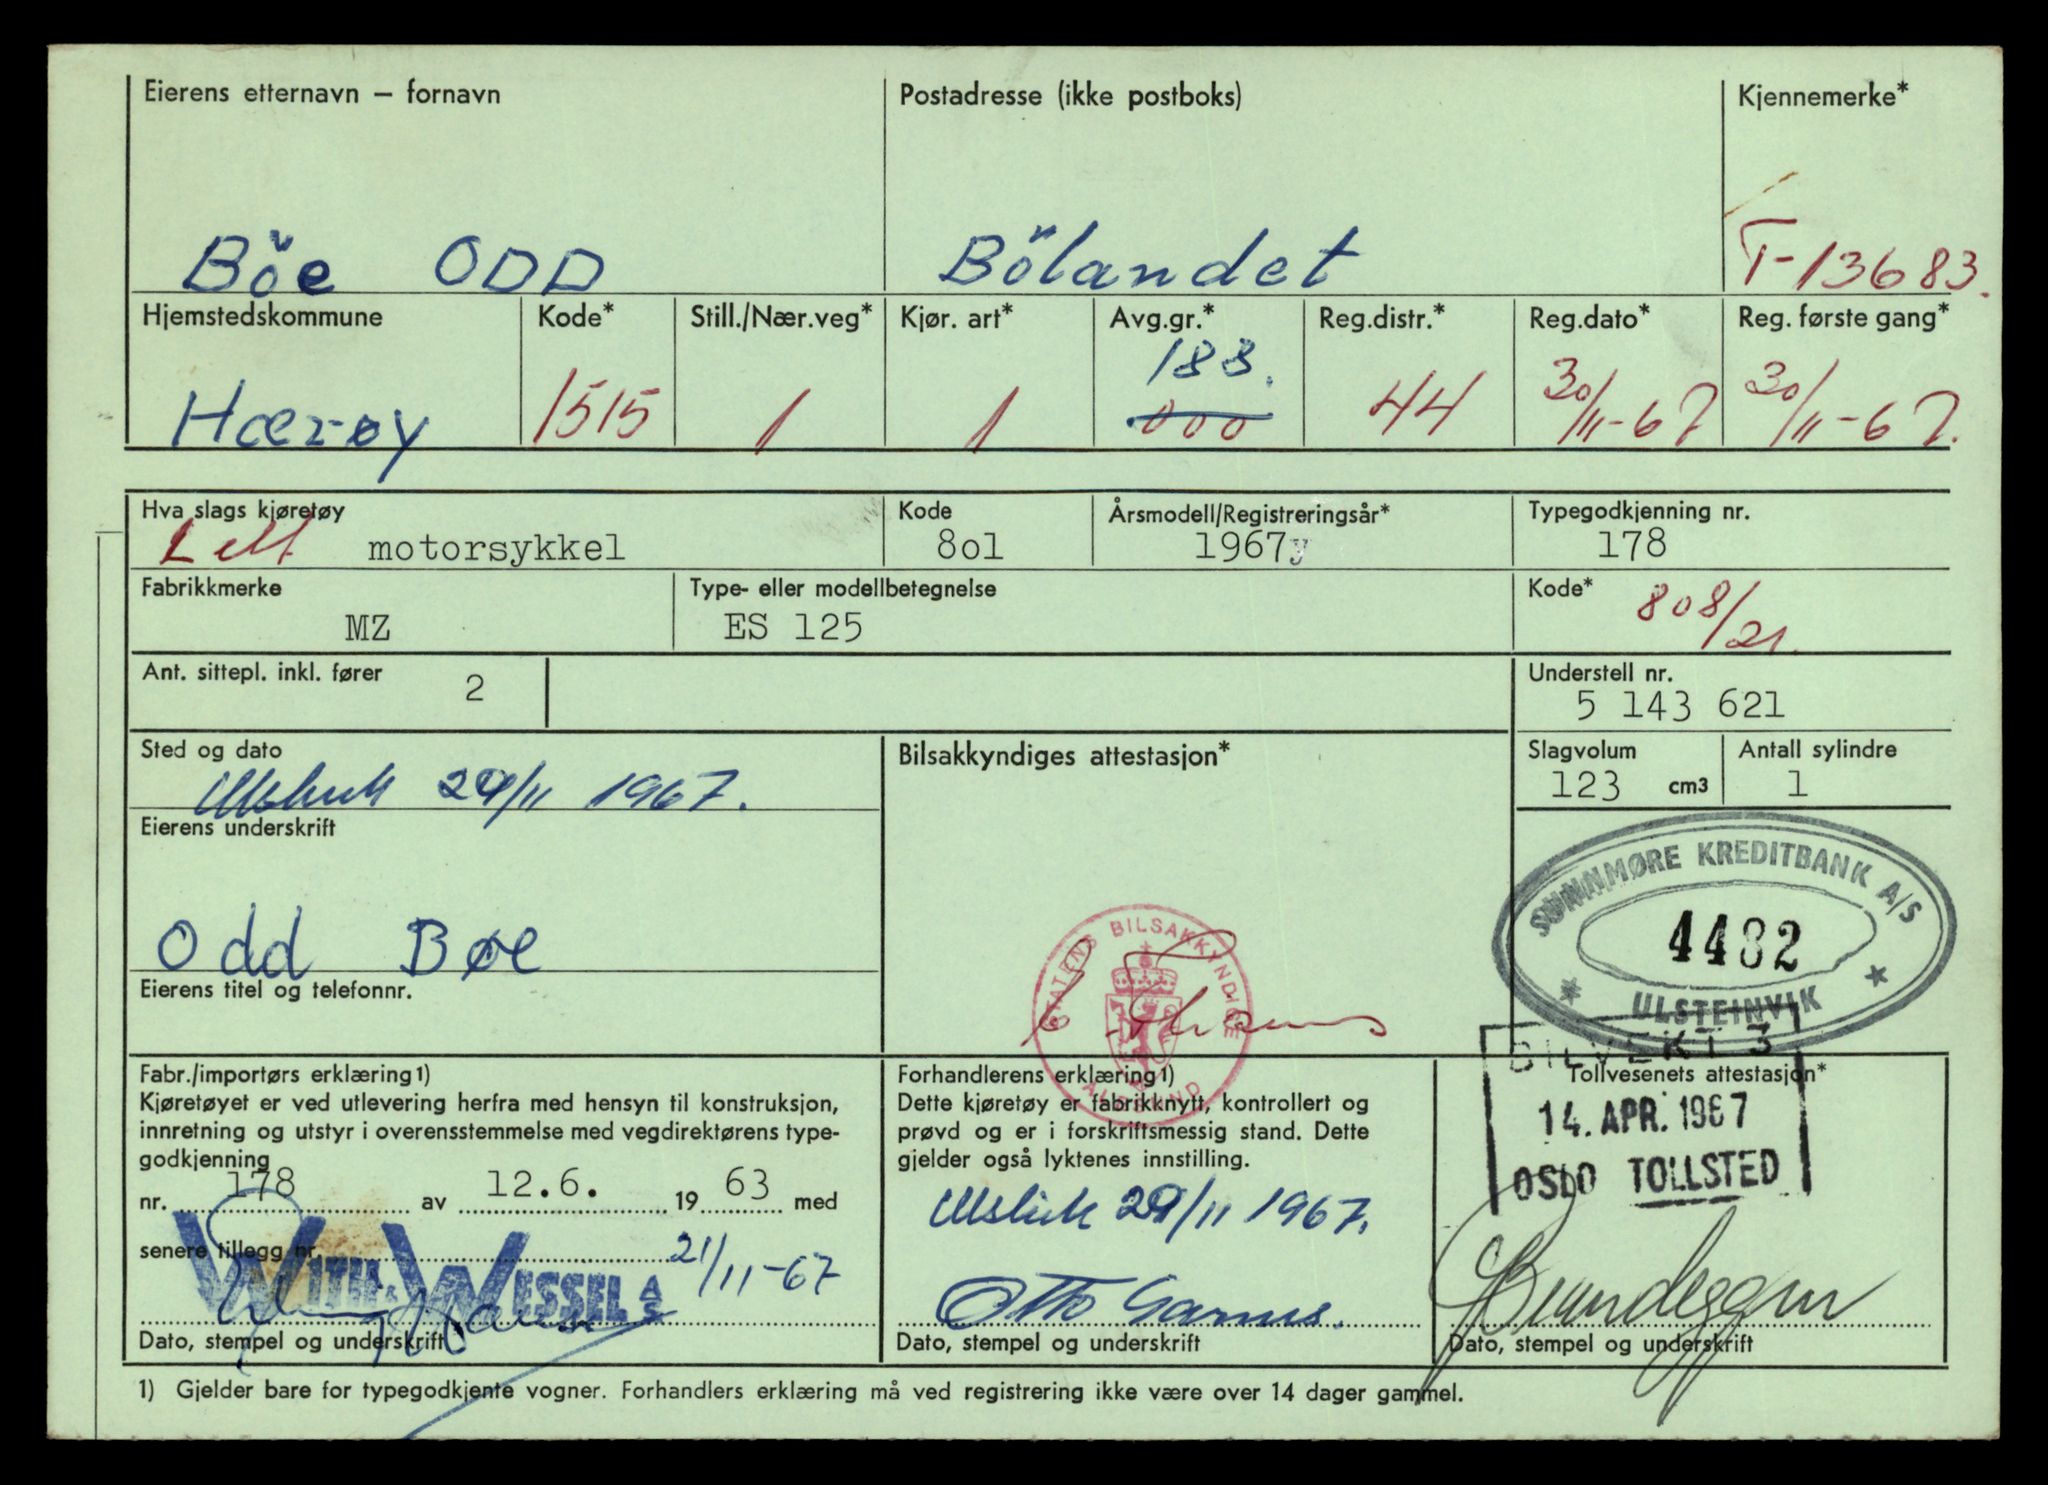 Eierens etternavn – fornavn
Postadresse (ikke postboks)
Kjennemerke*
Böe ODD
Bölandet
T-13683.
Hjemstedskommune
Kode*
Still./Nær.veg*
Kjør. art*
Avg.gr.*
Reg.distr.*
Reg.dato*
Reg. første gang*
Hærøy
1515
1
1
188.
000
44
30/11-67
30/11-67.
Hva slags kjøretøy
Kode
Årsmodell/Registreringsår*
Typegodkjenning nr.
Lett motorsykkel
8o1
1967y
178
Fabrikkmerke
Type- eller modellbetegnelse
Kode*
MZ
ES 125
808/21.
Ant. sittepl. inkl. fører
2
Understell nr.
5 143 621
Sted og dato
Bilsakkyndiges attestasjon*
Slagvolum
Antall sylindre
29/11 1967.
123 cm3
1
Eierens underskrift
Odd Bøe
SUNNMØRE KREDITBANK A/S
4482
* ULSTEINVIK *
STATENS BILSAKKYNDIGE
ÅLESUND
Eierens titel og telefonnr.
Fabr./importørs erklæring1)
Kjøretøyet er ved utlevering herfra med hensyn til konstruksjon,
innretning og utstyr i overensstemmelse med vegdirektørens type-
godkjenning
nr. 178 av 12.6. 19 63 med
senere tillegg nr.
21/11-67
WITH & WESSEL A/S
Dato, stempel og underskrift
Forhandlerens erklæring1)
Dette kjøretøy er fabrikknytt, kontrollert og
prøvd og er i forskriftsmessig stand. Dette
gjelder også lyktenes innstilling.
29/11 1967.
Otto Garnes.
Dato, stempel og underskrift
BILVEKT 3
Tollvesenets attestasjon*
14. APR. 1967
OSLO TOLLSTED
Dato, stempel og underskrift
1) Gjelder bare for typegodkjente vogner. Forhandlers erklæring må ved registrering ikke være over 14 dager gammel.